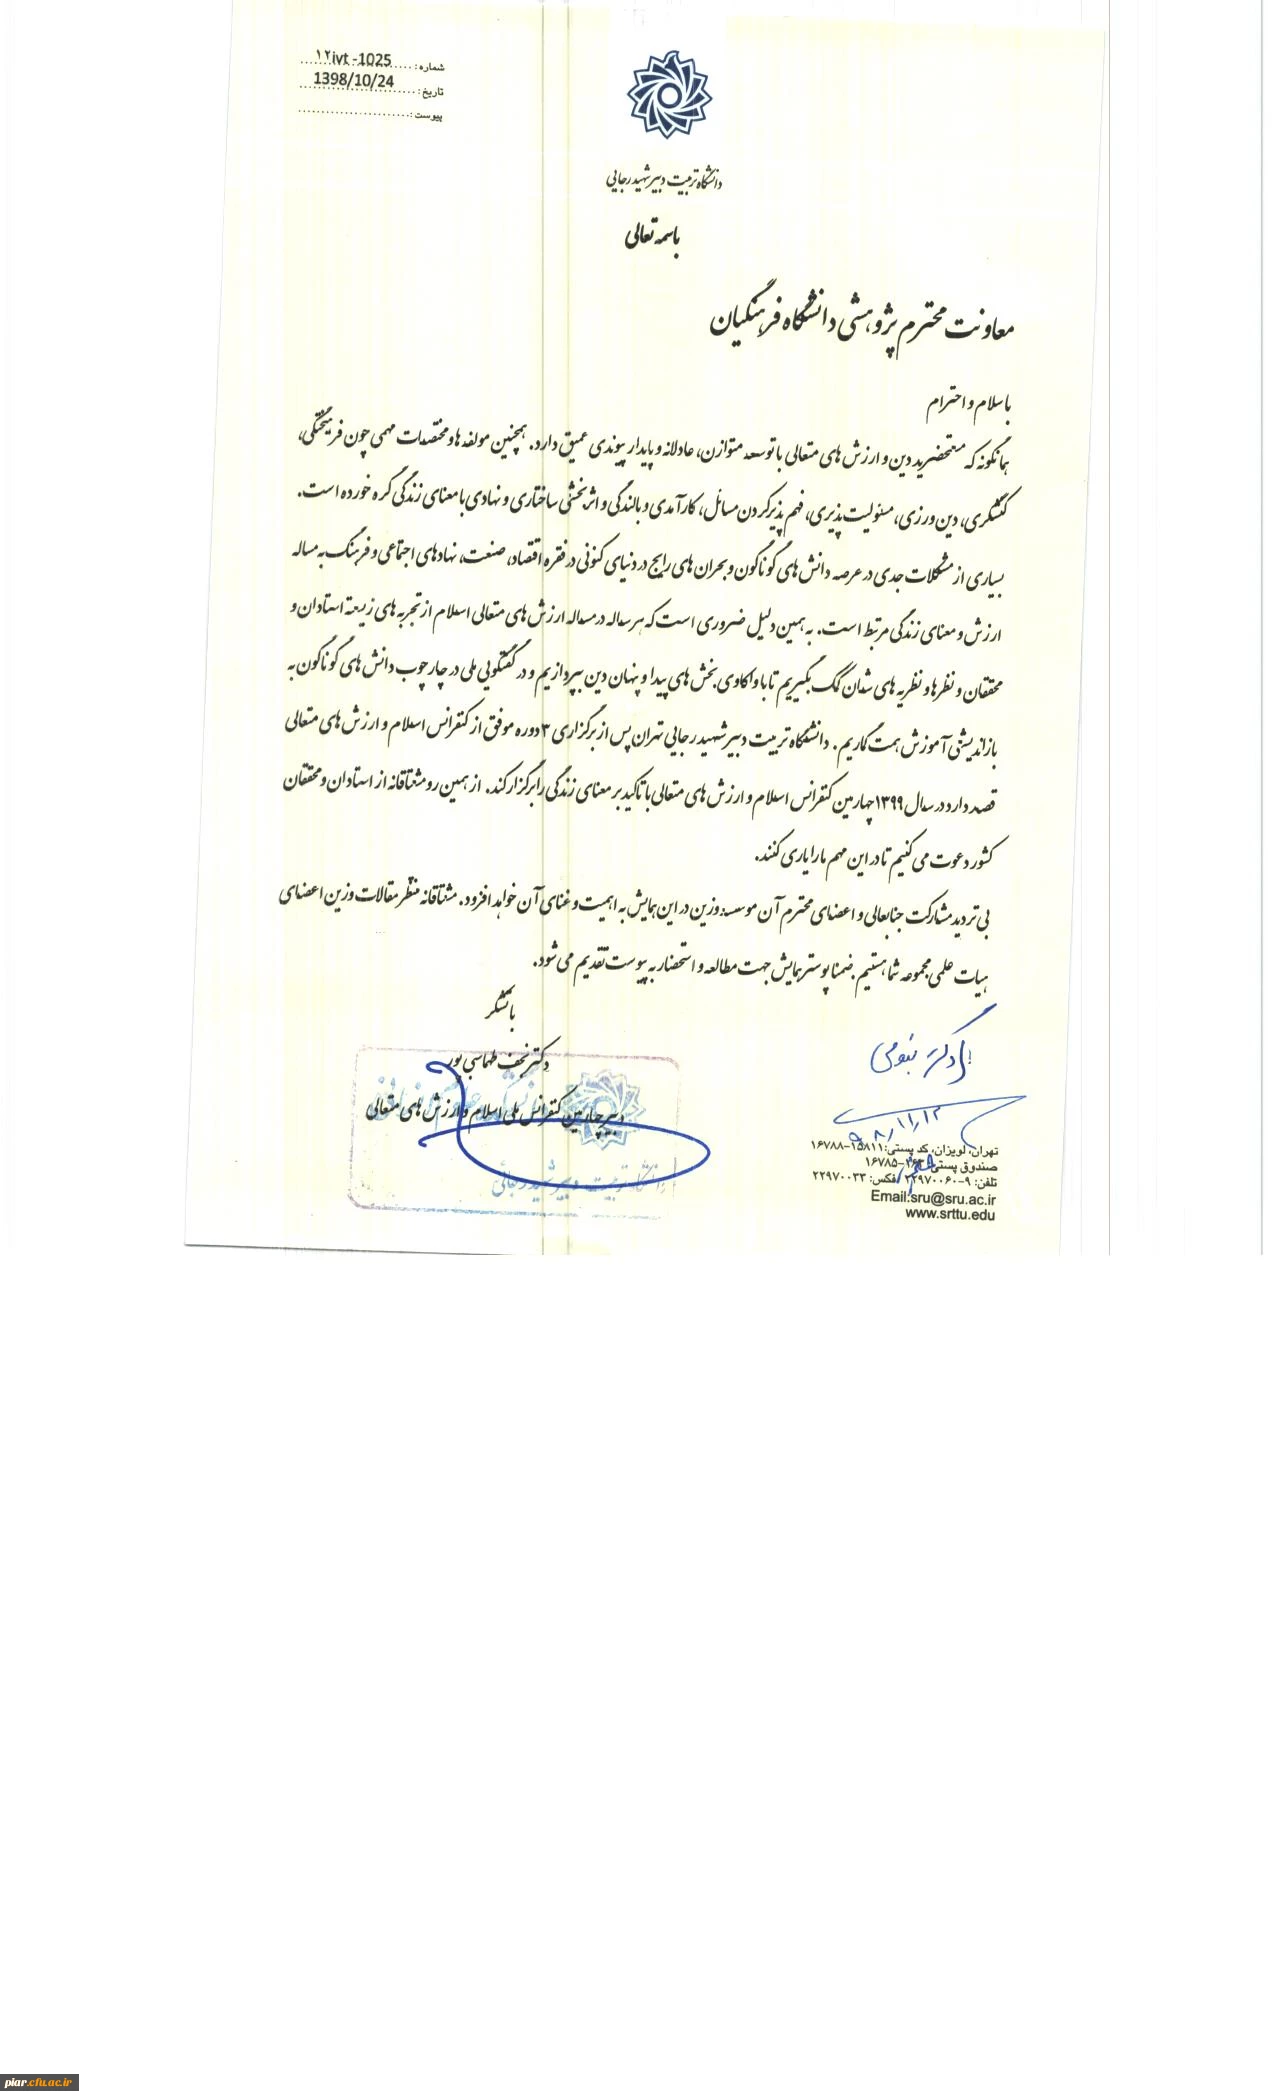 شماره: ۱۲ivt -1025
تاریخ: 1398/10/24
پیوست:
دانشگاه تربیت دبیر شهید رجایی
باسمه تعالی
معاونت محترم پژوهشی دانشگاه فرهنگیان
با سلام و احترام
همانگونه که مستحضرید دین و ارزش های متعالی با توسعه متوازن، عادلانه و پایدار پیوندی عمیق دارد. همچنین مولفه ها و مختصات مهمی چون فرهیختگی،
کنشگری، دین ورزی، مسئولیت پذیری، فهم پذیر کردن مسائل، کارآمدی و بالندگی و اثربخشی ساختاری و نهادی با معنای زندگی گره خورده است.
بسیاری از مشکلات جدی در عرصه دانش های گوناگون و بحران های رایج در دنیای کنونی در فقره اقتصاد، صنعت، نهادهای اجتماعی و فرهنگ به مساله
ارزش و معنای زندگی مرتبط است. به همین دلیل ضروری است که هر ساله در مساله ارزش های متعالی اسلام از تجربه های زیسته استادان و
محققان و نظرها و نظریه های شان کمک بگیریم تا با واکاوی بخش های پیدا و پنهان دین بپردازیم و در گفتگویی ملی در چارچوب دانش های گوناگون به
بازاندیشی آموزش همت گماریم. دانشگاه تربیت دبیر شهید رجایی تهران پس از برگزاری ۳ دوره موفق از کنفرانس اسلام و ارزش های متعالی
قصد دارد در سال ۱۳۹۹ چهارمین کنفرانس اسلام و ارزش های متعالی با تاکید بر معنای زندگی را برگزار کند. از همین رو مشتاقانه از استادان و محققان
کشور دعوت می کنیم تا در این مهم ما را یاری کنند.
بی تردید مشارکت جنابعالی و اعضای محترم آن موسسه وزین در این همایش به اهمیت و غنای آن خواهد افزود. مشتاقانه منتظر مقالات وزین اعضای
هیات علمی مجموعه شما هستیم. ضمنا پوستر همایش جهت مطالعه و استحضار به پیوست تقدیم می شود.
با تشکر
دکتر نجف طهماسبی پور
دبیر چهارمین کنفرانس ملی اسلام و ارزش های متعالی
دانشگاه تربیت دبیر شهید رجائی
دکتر
۹۸/۱۱/۱۲
تهران، لویزان، کد پستی: ۱۵۸۱۱-۱۶۷۸۸
صندوق پستی: ۱۶۳-۱۶۷۸۵
تلفن: ۹-۲۲۹۷۰۰۶۰ فکس: ۲۲۹۷۰۰۳۳
Email:sru@sru.ac.ir
www.srttu.edu
piar.cfu.ac.ir